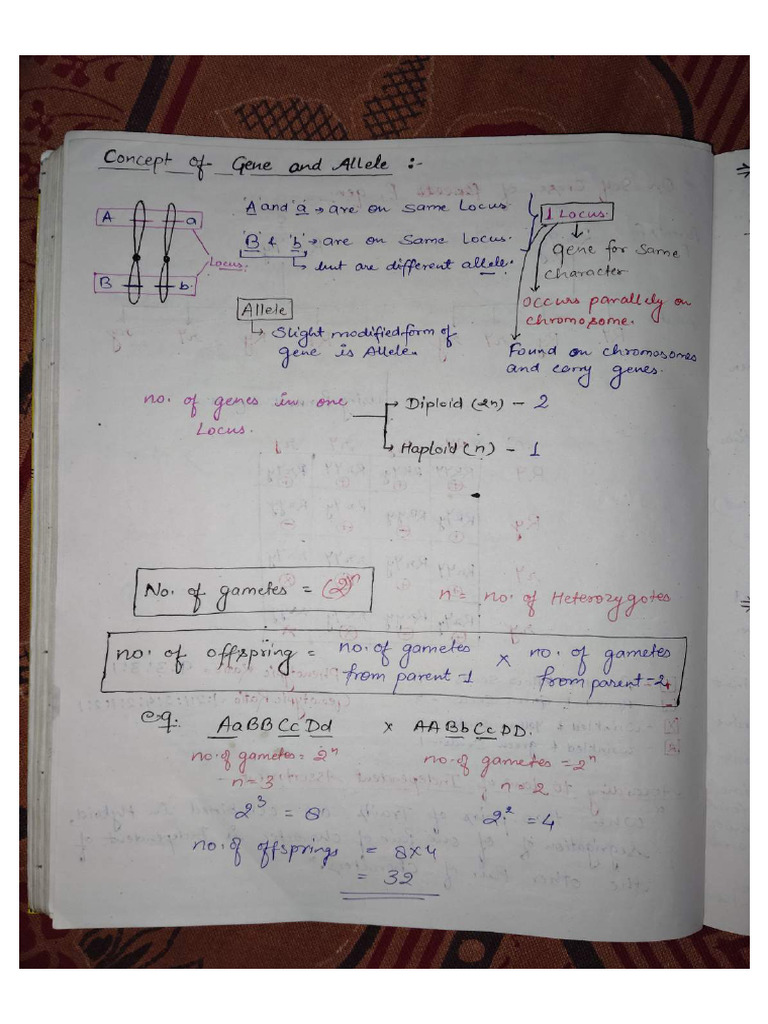 Concept of Gene and Allele :-
A a
Locus.
B b.
'A' and 'a' → are on Same Locus
'B' & 'b' → are on Same Locus.
↳ but are different allele.
1 Locus.
gene for same
character
occurs parallely on
chromosome.
Found on chromosomes
and carry genes.
Allele
↳ Slight modified form of
gene is Allele.
no. of genes in one
Locus.
→ Diploid (2n) - 2
→ Haploid (n) - 1
No. of gametes = (2)ⁿ
n = no. of Heterozygotes
no. of offspring = no. of gametes from parent -1 × no. of gametes from parent -2
eg. AaBBCcDd × AABbCcDD.
no. of gametes = 2ⁿ no. of gametes = 2ⁿ
n = 3 n = 2
2³ = 8 2² = 4
no. of offsprings = 8×4
= 32